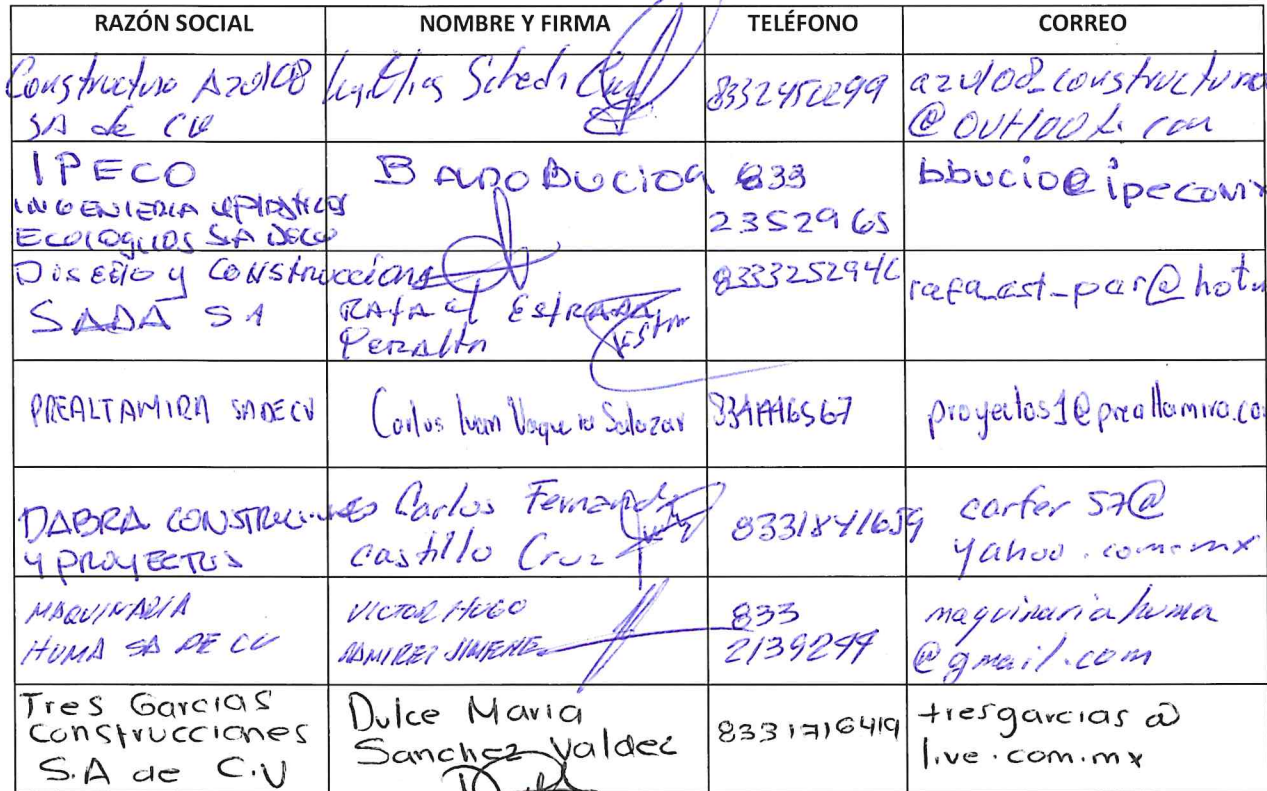 RAZÓN SOCIAL NOMBRE Y FIRMA TELÉFONO CORREO
Constructura Azul08
SA de CV
8332452299
azul08_constructura
@outlook.com
IPECO
ECOLOGICOS SA DE CV
833
2352965
bbucio@ipecomx
Diseño y Construcciones
SADA SA
Rafael Estrada
Peralta
rafa_est_par@hotm
PREALTAMIRA SA DE CV
Carlos Ivan Vaquero Salazar
proyectos1@prealtamira.co
DABRA
y PROYECTOS
Carlos Fernando
Castillo Cruz
8331841659
carfer57@
yahoo.com.mx
MAQUINARIA
HUMA SA DE CV
VICTOR HUGO
RAMIREZ JIMENEZ
833
maquinariahuma
@gmail.com
Tres Garcias
Construcciones
S.A de C.V
Dulce Maria
Sanchez Valdez
8331716419
tresgarcias@
live.com.mx